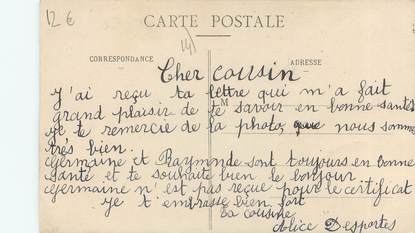 12 €
CARTE POSTALE
CORRESPONDANCE
ADRESSE
Cher cousin
J'ai reçu ta lettre qui m'a fait
grand plaisir de te savoir en bonne santé
M
je te remercie de la photo, que nous somme
très bien.
Germaine et Raymonde sont toujours en bonne
santé et te souhaite bien le bonjour.
Germaine n'est pas reçue pour le certificat
je t'embrasse bien fort
ta cousine
Alice Desportes